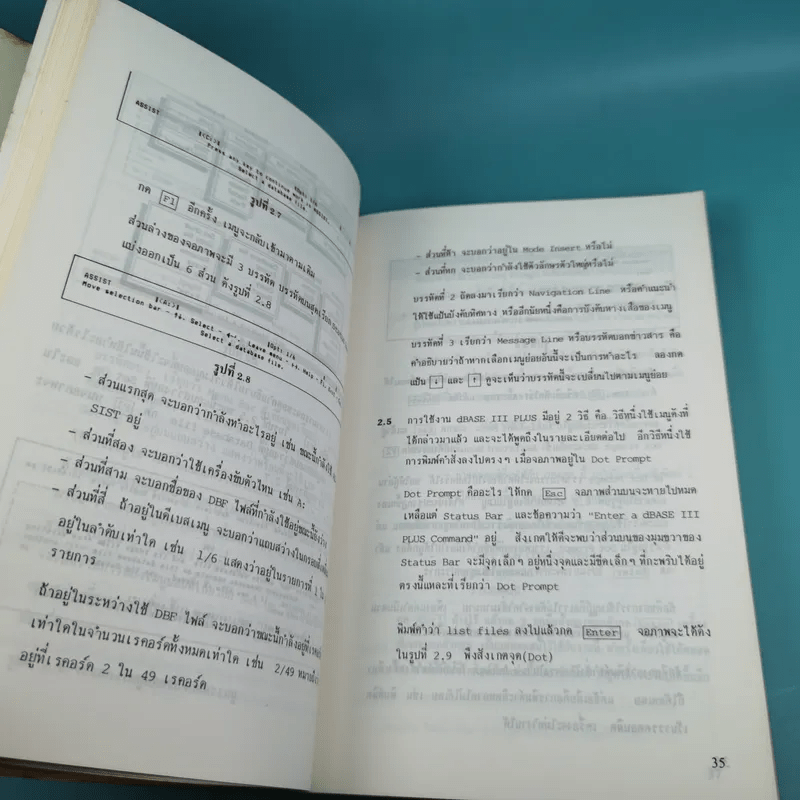 ASSIST
Press any key to continue work in ASSIST.
Select a database file.
รูปที่ 2.7
กด F1 อีกครั้ง เมนูจะกลับเข้ามาตามเดิม
ส่วนล่างของจอภาพจะมี 3 บรรทัด บรรทัดบนสุดเรียก
แบ่งออกเป็น 6 ส่วน ดังรูปที่ 2.8
ASSIST |<A:>| Opt: 1/6
Move selection bar - Select - Leave menu - Help - F1.
Select a database file.
รูปที่ 2.8
- ส่วนแรกสุด จะบอกว่ากำลังทำอะไรอยู่ เช่น ขณะนี้กำลัง
SIST อยู่
- ส่วนที่สอง จะบอกว่าใช้เครื่องขับตัวไหน เช่น A:
- ส่วนที่สาม จะบอกชื่อของ DBF ไฟล์ที่กำลังใช้อยู่ขณะนี้
- ส่วนที่สี่ ถ้าอยู่ในดีเบสเมนู จะบอกว่าแถบสว่างในกรอบ
อยู่ในลำดับเท่าใด เช่น 1/6 แสดงว่าอยู่ในรายการที่ 1 ใน
รายการ
ถ้าอยู่ในระหว่างใช้ DBF ไฟล์ จะบอกว่าขณะนี้กำลังอยู่ที่
เท่าใดในจำนวนเรคอร์ดทั้งหมดเท่าใด เช่น 2/49 หมาย
อยู่ที่เรคอร์ด 2 ใน 49 เรคอร์ด
- ส่วนที่ห้า จะบอกว่าอยู่ใน Mode Insert หรือไม่
- ส่วนที่หก จะบอกว่ากำลังใช้ตัวอักษรตัวใหญ่หรือไม่
บรรทัดที่ 2 ถัดลงมาเรียกว่า Navigation Line หรือคำแนะนำ
ให้ใช้แป้นบังคับทิศทาง หรืออีกนัยหนึ่งคือการบังคับทางเลือกของเมนู
บรรทัดที่ 3 เรียกว่า Message Line หรือบรรทัดบอกข่าวสาร คือ
คำอธิบายว่าถ้าหากเลือกเมนูย่อยอันนี้จะเป็นการทำอะไร ลองกด
แป้น ↓ และ ↑ ดูจะเห็นว่าบรรทัดนี้จะเปลี่ยนไปตามเมนูย่อย
2.5 การใช้งาน dBASE III PLUS มีอยู่ 2 วิธี คือ วิธีหนึ่งใช้เมนูดังที่
ได้กล่าวมาแล้ว และจะได้พูดถึงในรายละเอียดต่อไป อีกวิธีหนึ่งใช้
การพิมพ์คำสั่งลงไปตรงๆ เมื่อจอภาพอยู่ใน Dot Prompt
Dot Prompt คืออะไร ให้กด Esc จอภาพส่วนบนจะหายไปหมด
เหลือแต่ Status Bar และข้อความว่า "Enter a dBASE III
PLUS Command" อยู่ สังเกตให้ดีจะพบว่าส่วนบนของมุมขวาของ
Status Bar จะมีจุดเล็กๆ อยู่หนึ่งจุดและมีขีดเล็กๆ ที่กะพริบได้อยู่
ตรงนี้แหละที่เรียกว่า Dot Prompt
พิมพ์คำว่า list files ลงไปแล้วกด Enter จอภาพจะได้ดัง
ในรูปที่ 2.9 พึงสังเกตจุด(Dot)
35